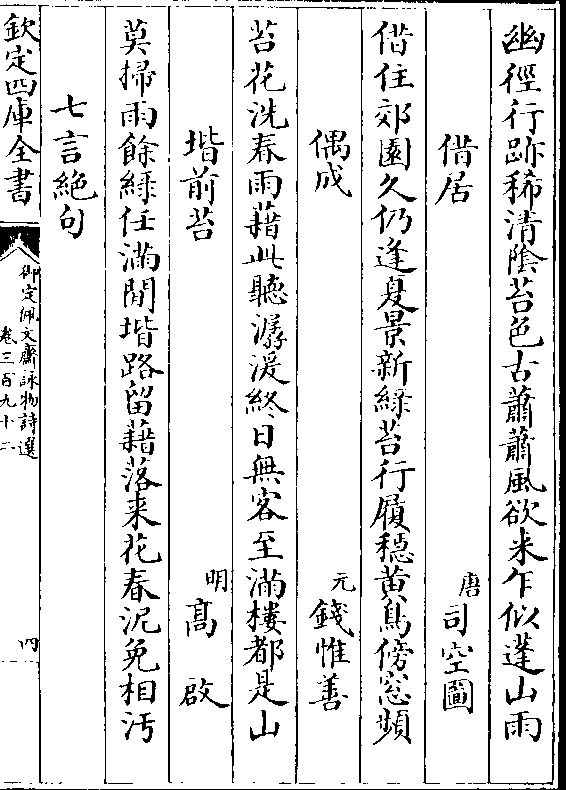 幽徑行跡稀清陰苔色古蕭蕭風欲來乍似蓬山雨
借居　唐司空圖
借住郊園久仍逢夏景新綠苔行履穩黃鳥傍窓頻
偶成　元錢惟善
苔花洗春雨藉此聽潺湲終日無客至滿樓都是山
堦前苔　明高啟
莫掃雨餘綠任滿閒堦路留藉落来花春泥免相汚
七言絶句
欽定四庫全書
御定佩文齋詠物詩選
卷三百九十二
四